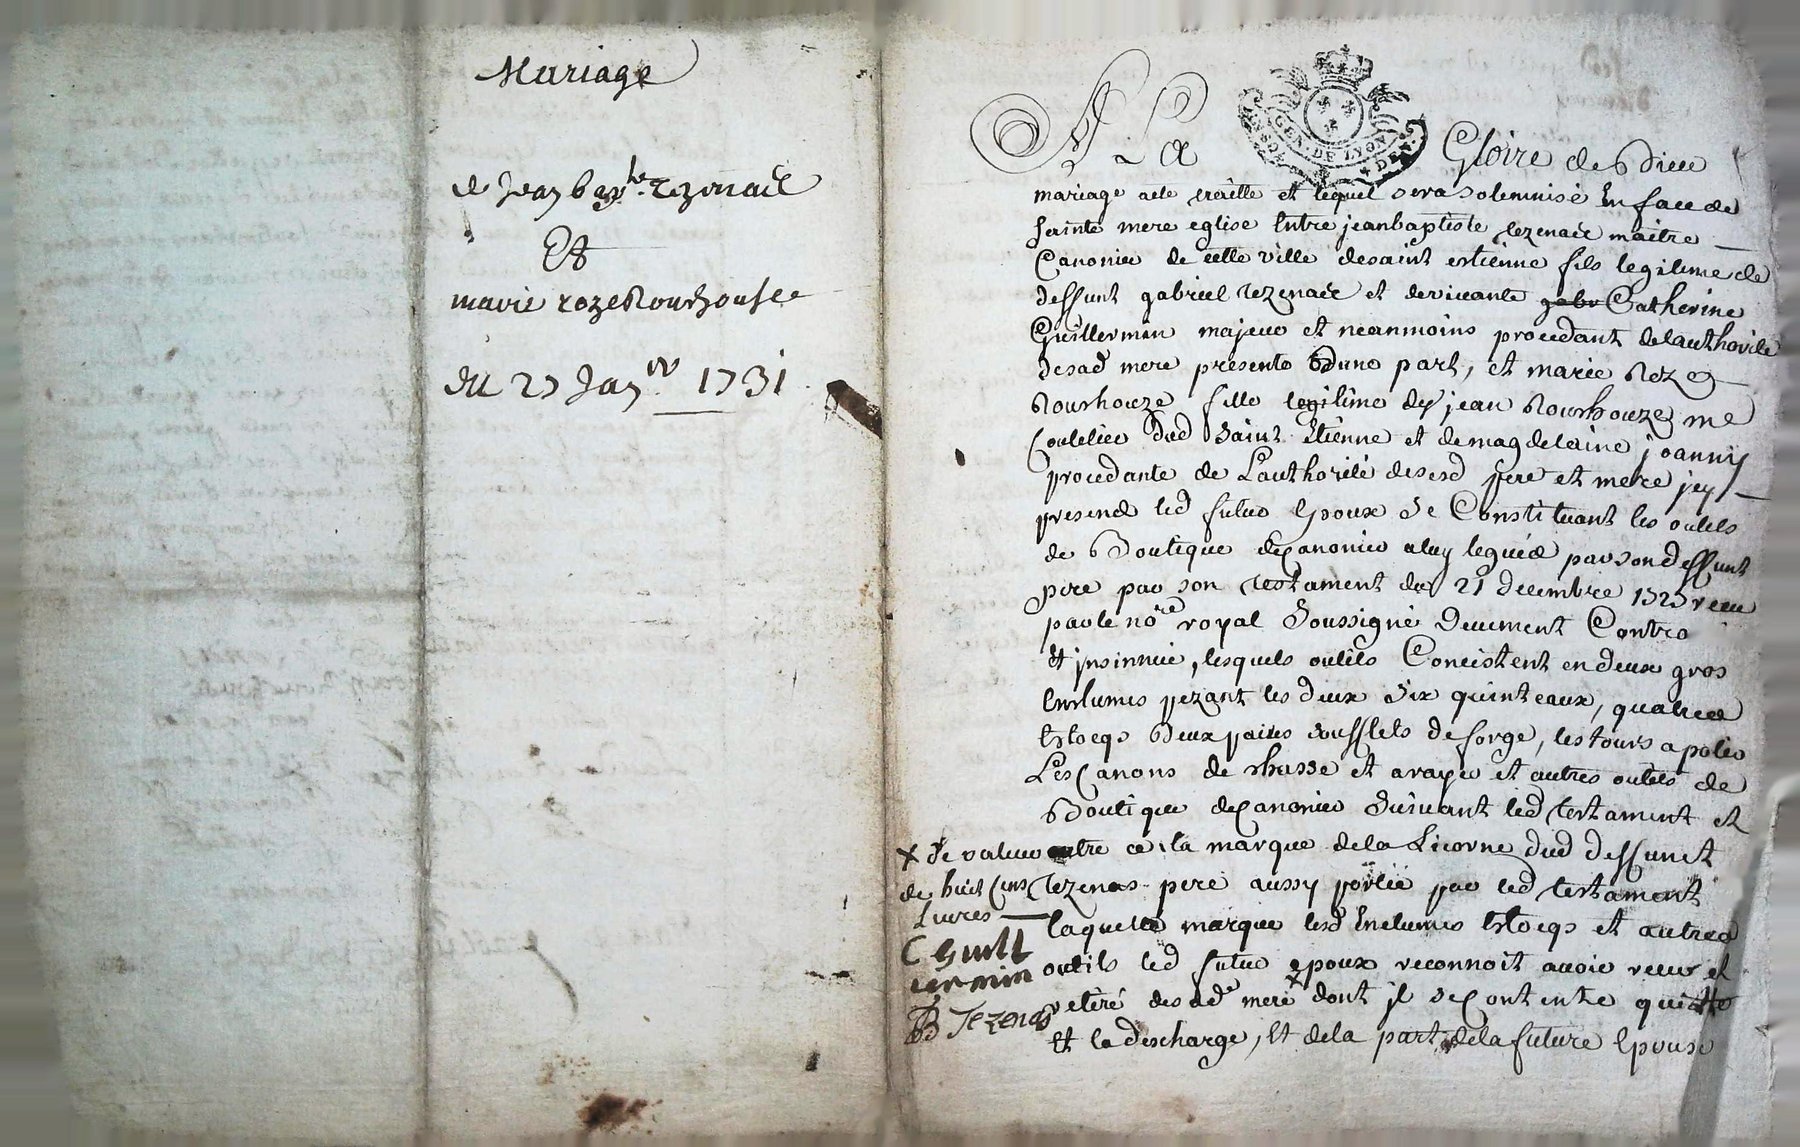 Mariage
de Jean bap.te Tezenas
Et
marie roze Rourhouse
du 27 Jan.er 1731
A La Gloire de Dieu
GEN. DE LYON
mariage acte traitté et lequel sera solemnisé En face de
sainte mere eglise Entre jean baptiste tezenas maitre
Canonier de cette ville de saint estienne fils legitime de
deffunt gabriel tezenas et de vivante Catherine
Guillermin majeur et neanmoins procedant de lauthorité
de sad mere presente Dune part, et marie Roze
Rourhouze fille legitime de jean Rourhouze me
Coutelier dud Saint Etienne et de magdelaine joanny
procedante de Lauthorité de sesd pere et mere jcy
presend led futur Epoux Se Constituant les outils
de Boutique de Canonier a luy legués par son deffunt
pere par son testament du 21 decembre 1725 receu
par le no.re royal Soussigné Deuement Contro
et jnsinuié, lesquels outils Concistent en deux gros
Enclumes pezant les deux Six quinteaux, quatre
bloqs Deux paires soufflets de forge, les tours a polir
Les Canons de chasse et a rayer et autres outils de
Boutique de Canonier Suivant led testament et
outre ce la marque de la Licorne dud deffunct
Tezenas pere aussy portée par led testament
laquelle marque lesd Enclumes bloqs et autres
outils led futur epoux reconnoit avoir receu et
retiré de sad.e mere dont jl se Contente quitte
et la descharge, Et de la part de la future Epouse
x de valeur
de huict Cens
Livres
C Guill
ermin
JB Tezenas